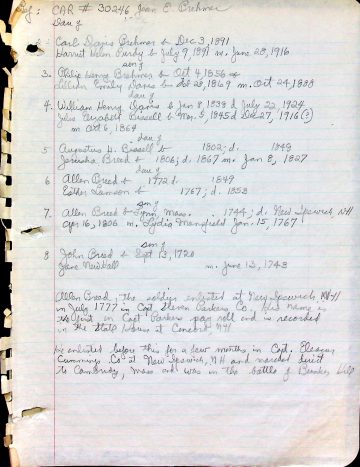 CAR # 30246 Jean E. Brehmer
Dau of
Carl Davis Brehmer b Dec 3, 1891
Harriet Helen Purdy b July 9, 1891 m. June 28, 1916
son of
3. Henry Brehmer b Oct 4, 1856
Lillian Emily Davis b 1869 m. Oct 24, 1888
dau of
4. William Henry Davis b Jan 8 1838 d July 22, 1924
Julia Elizabeth Bissell b Nov. 5, 1845 d Dec 27, 1916 (?)
m Oct 6, 1864
dau of
5 Augustus H. Bissell b 1802; d. 1849
Jerusha Breed b 1806; d. 1867 m. Jan 8, 1827
dau of
6 Allen Breed b 1772 d. 1849
Esther Lamson b 1767; d. 1858
son of
7. Allen Breed b Lynn, Mass. 1744; d. New Ipswich, NH
Apr 16, 1806 m. Lydia Mansfield Jan. 15, 1767
son of
8 John Breed b Sept 13, 1720
Jane Newhall m. June 13, 1743
Allen Breed, the soldier enlisted at New Ipswich, NH
in July 1777 in Capt. Parkers Co. name is
in Capt Parkers pay roll and is recorded
in the State House at Concord NH
He enlisted before this for a few months, in Capt. Eleazer
Cummings Co at New Ipswich, NH and marched direct
to Cambridge, Mass and was in the battle of Bunker Hill